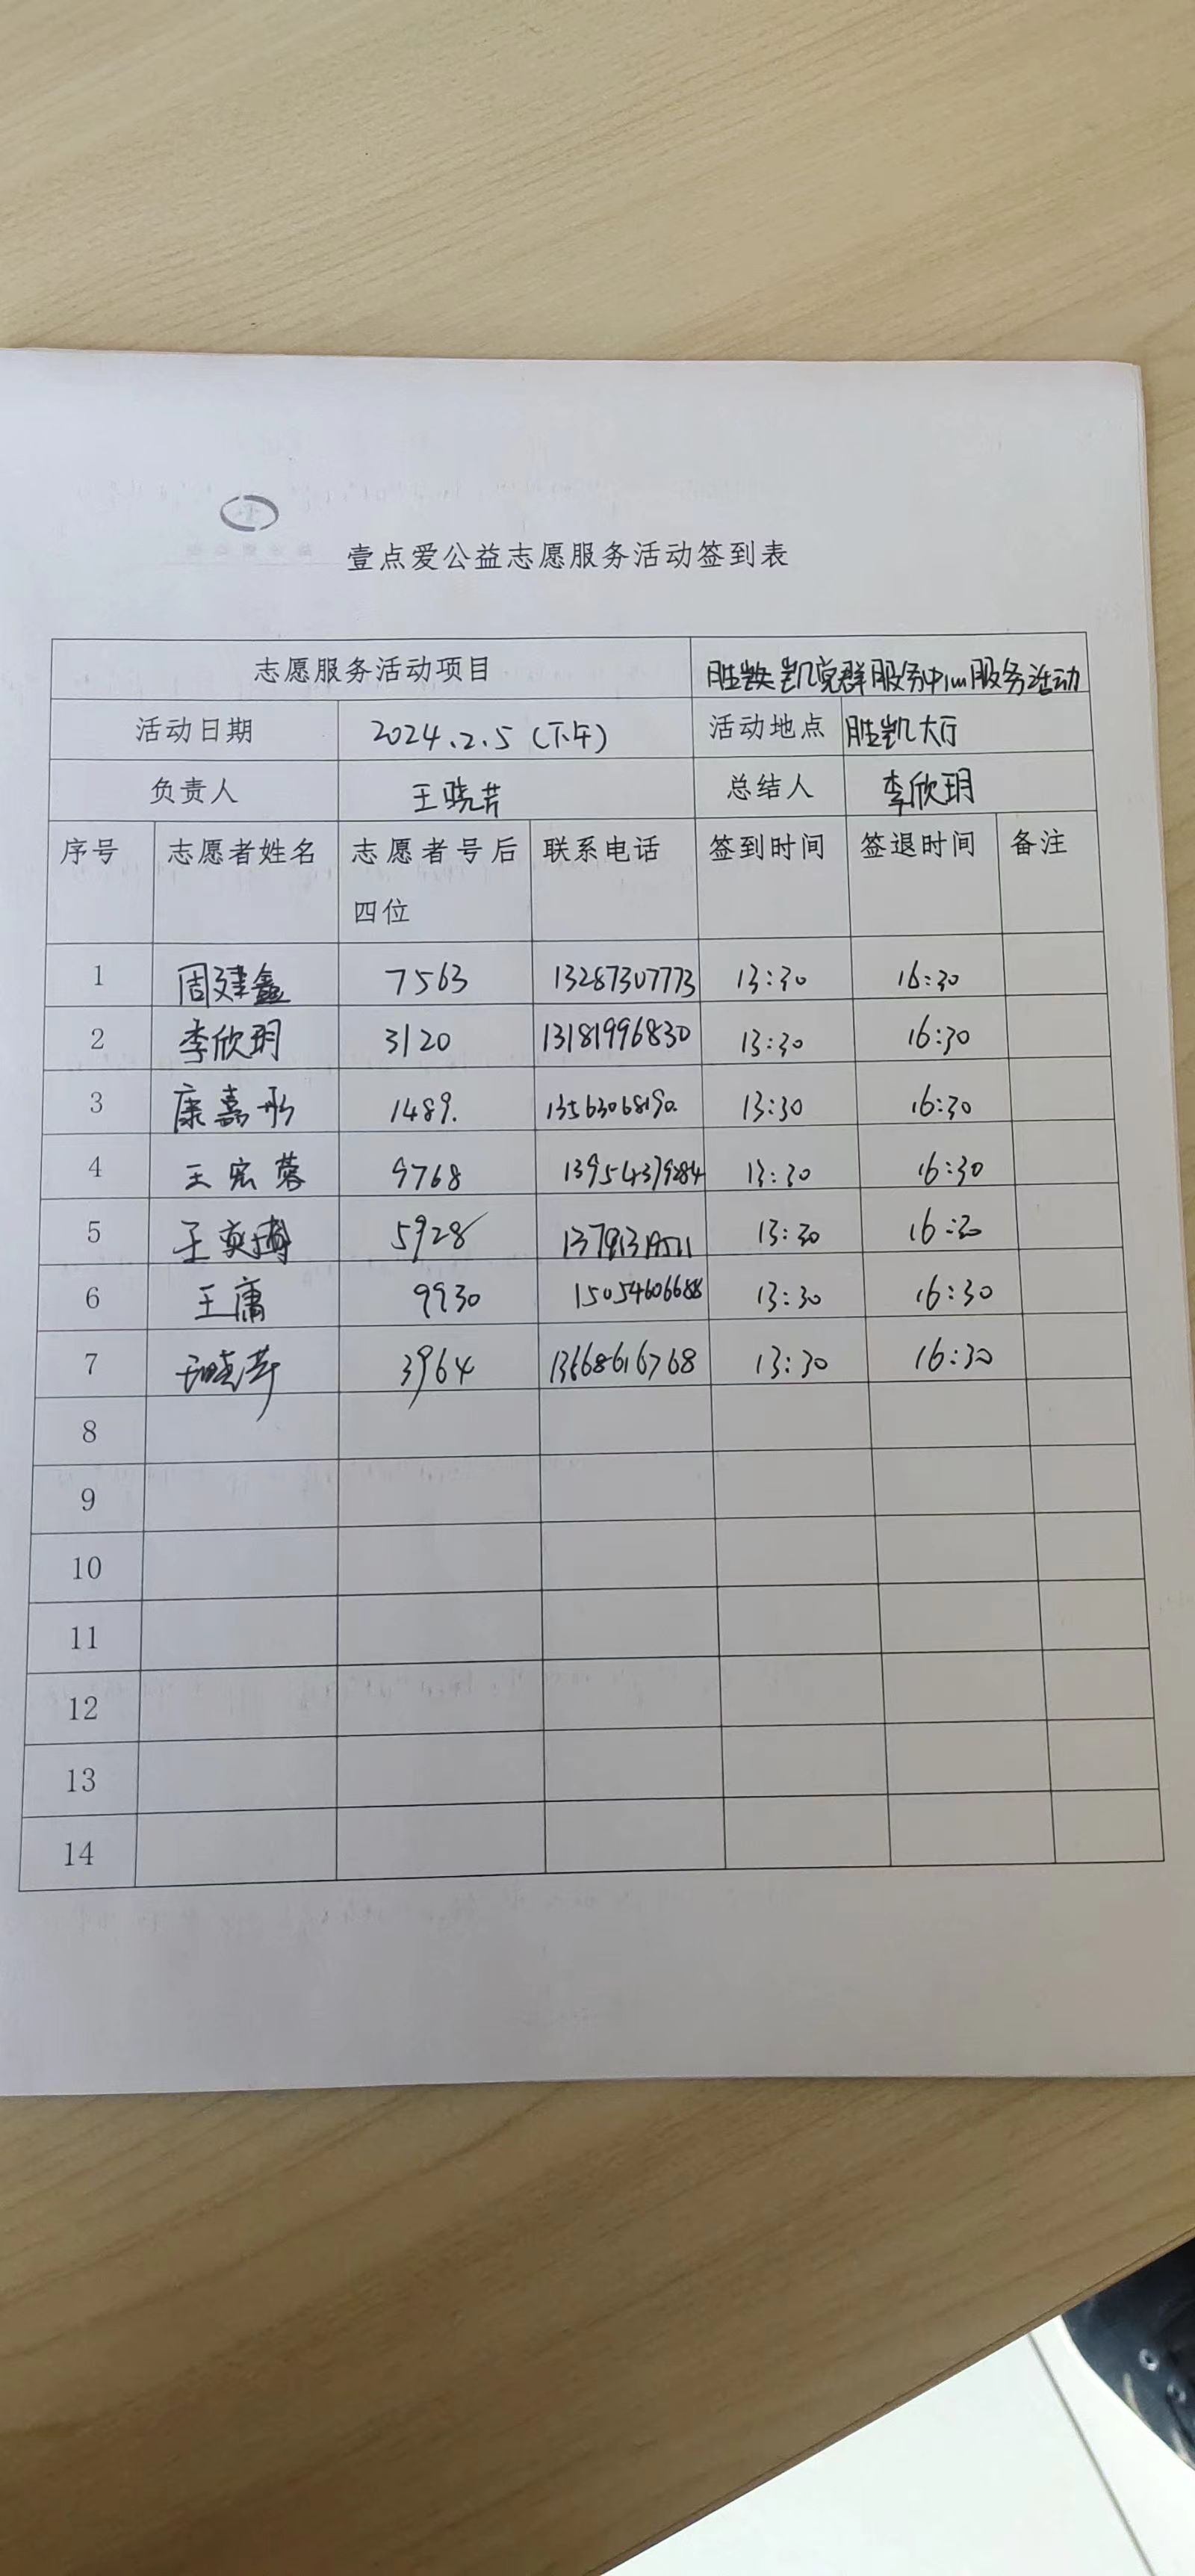 壹点爱公益志愿服务活动签到表
志愿服务活动项目 胜凯党群服务中心服务活动
活动日期 2024.2.5（下午） 活动地点 胜凯大厅
负责人 王晓芳 总结人 李欣玥
序号 志愿者姓名 志愿者号后四位 联系电话 签到时间 签退时间 备注
1 周建鑫 7563 13287307773 13:30 16:30
2 李欣玥 3120 13181996830 13:30 16:30
3 康嘉彤 1489. 13563068190. 13:30 16:30
4 王宏蓉 9768 13954379284 13:30 16:30
5 5928 13:30 16:30
6 王庸 9930 15054606688 13:30 16:30
7 3964 13668616768 13:30 16:30
8
9
10
11
12
13
14